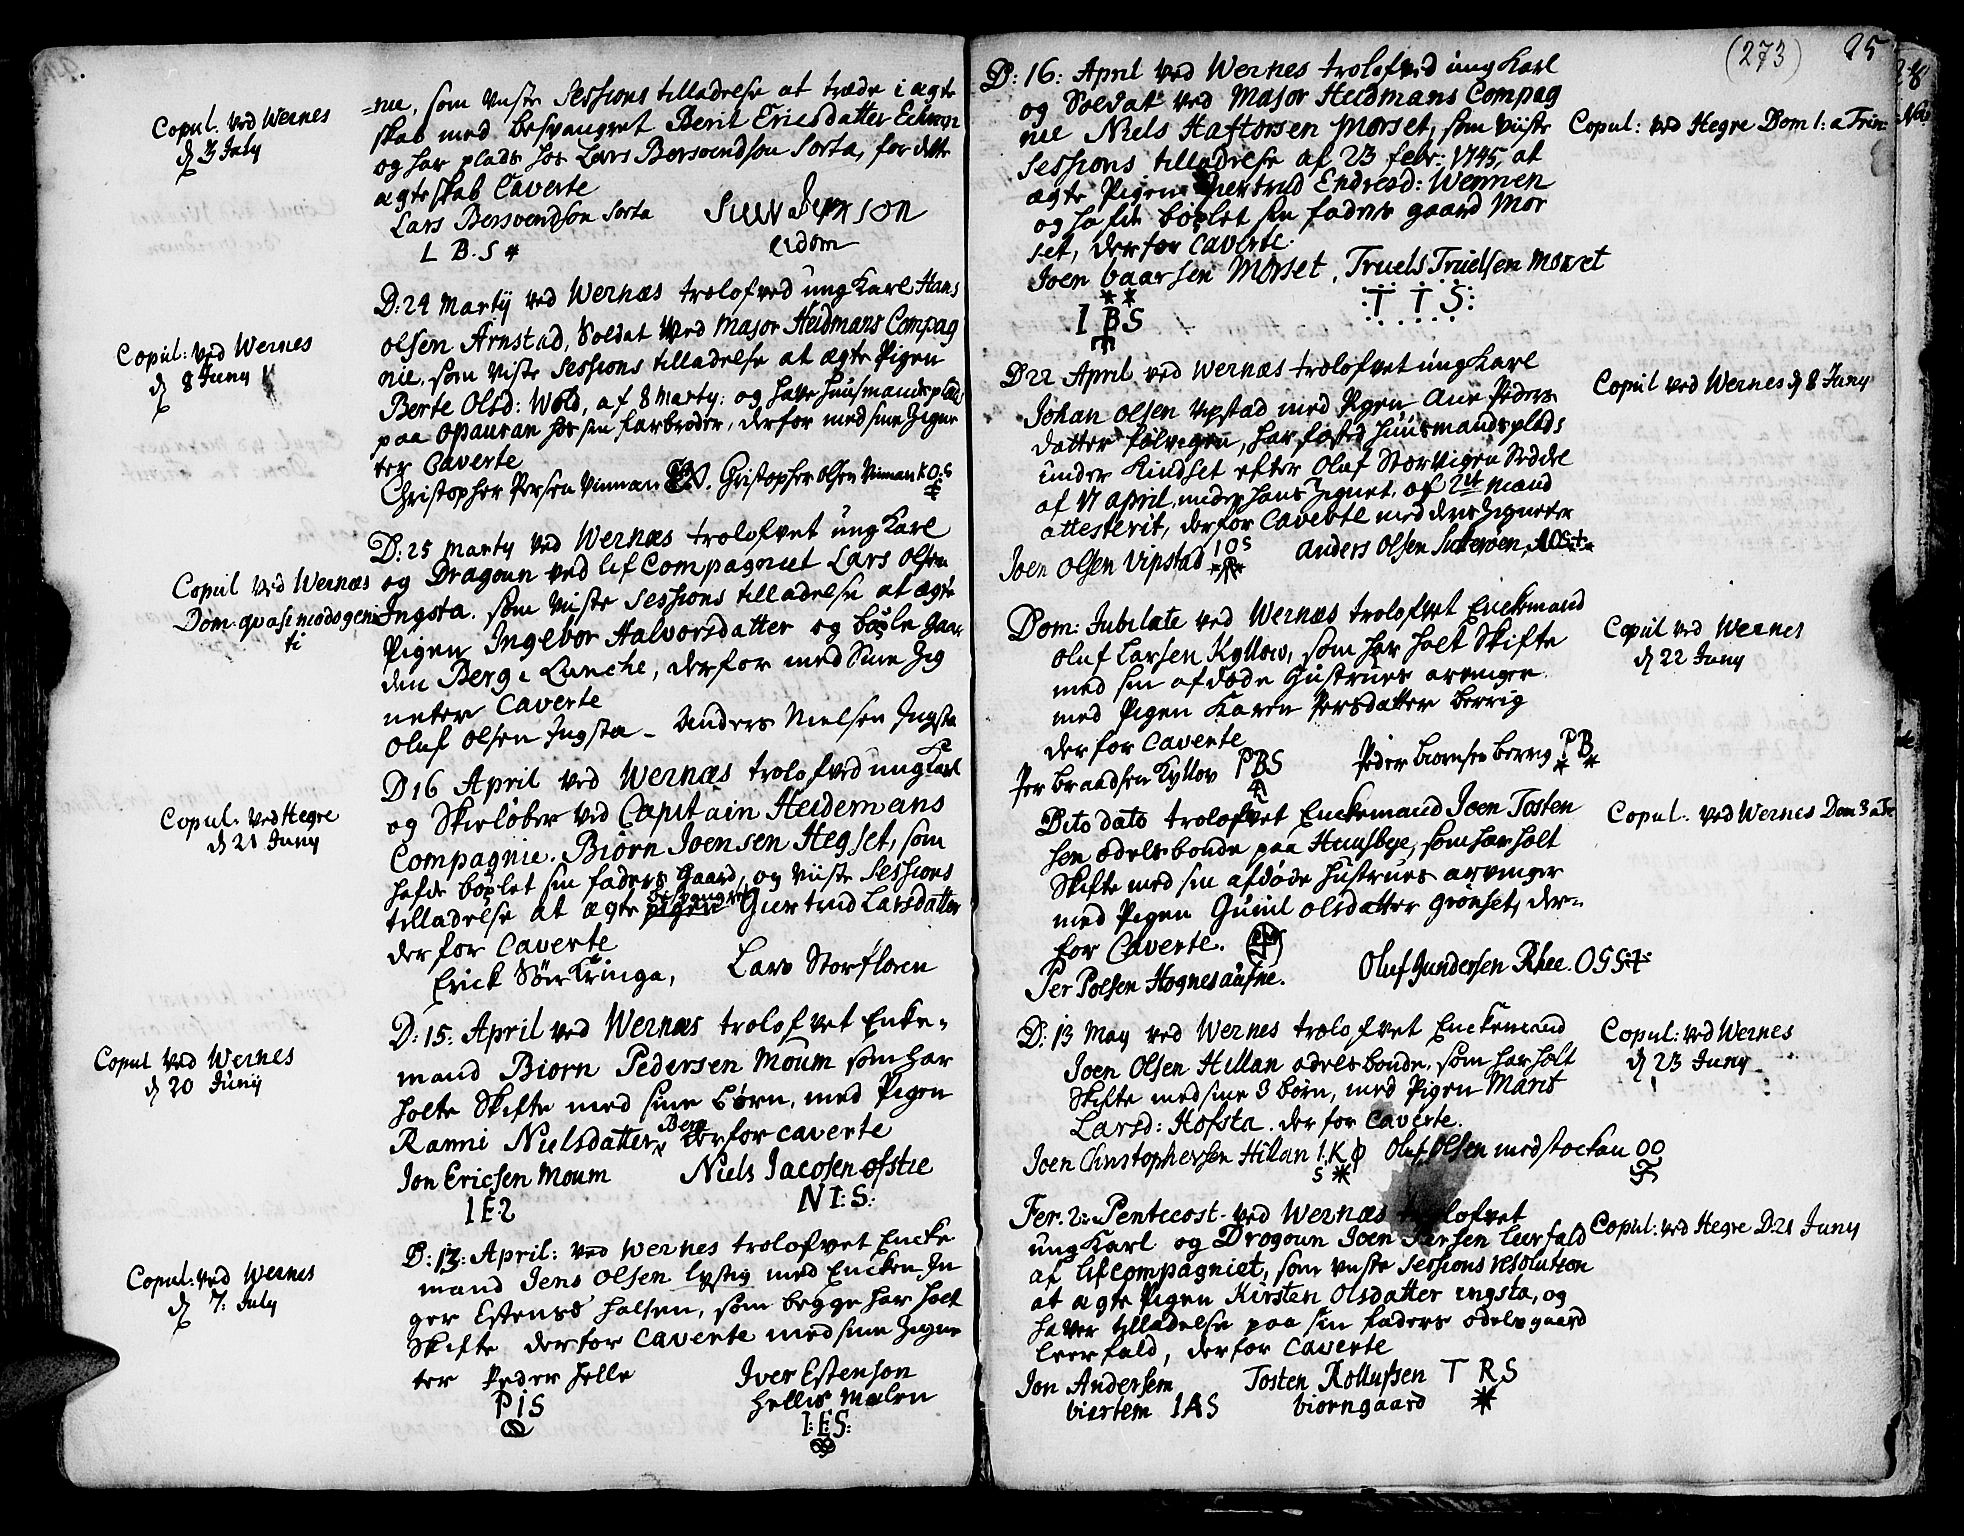 Copul. ved Wernes
d 3 July
nie, som viste Sessions tilladelse at træde i ægte
skab med besvangret Berit Ericsdatter
og har plads hos Lars Bersvendson Sorta, for dette
ægteskab Caverte
Lars Bersvendson Sorta
L B. S
Copul: ved Wernes
d 8 Juny
D: 24 Martij ved Wernæs trolofved ung Karl Hans
olsen Arnstad, Soldat ved Major Heidmans Compag
nie, som viste Sessions tilladelse at ægte Pigen
Berte Olsd: Wold, af 8 Marty: og have huusmandsplads
paa opauran hos sin farbroder, derfor med sine Zigne
ter Caverte
Christopher Persen Vinnan Christopher olsen Vinnan K O: S
Copul ved Wernæs
Dom. qvasimodogeni
ti
D: 25 Marty ved Wernæs trolofvet ung Karl
og Dragoun ved lif Compagniet Lars Olsen
Ingsta. som viiste Sessions tilladelse at ægte
Pigen Ingebor Halvorsdatter og böxle gaar
den Berg i Lanche, derfor med Sine Zig
neter Caverte
Oluf Olsen Ingsta - Anders Nielsen Ingsta
Copul. ved Hegre
d 21 Juny
D 16 April ved Wernæs trolofved ung Karl
og Skieløber ved Capitain Heidemans
Compagnie. Biørn Joensen Hegset, som
hafde böxlet sin faders Gaard, og viiste Sessions
besvangret
tilladelse at ægte pigen Giertrud Larsdatter
derfor Caverte
Erick Sör Kringa, Lars Storfloren
Copul ved Wernes
d 20 Junij
D: 15: April ved Wernæs trolofvet Enke-
mand Biorn Pedersen Moum som har
holte Skifte med sine börn, med Pigen
Berg
Ranni Nielsdatter, derfor caverte
Jon Ericsen Moum Niels Jacosen ofstie
I E: S N I: S:
Copul: ved Wernes
d 7: July
D: 13: April: ved Wernes trolofvet Encke
mand Jens Olsen lystig med Encken In
ger Estensd halsen, som begge har holt
Skifte derfor Caverte med sine Zigne
ter Peder helle Iver Estenson
hellis Malen
P I S I: E S:
(273) 95
D: 16: April ved Wernes trolofved ung Karl
og Soldat ved Major Heidmans Compag
nie Niels Haftorsen Morset, som viiste
Sessions tilladelse af 23 febr: 1745, at
ægte Pigen Giertrud Endresd: Wennen
og hafde böxlet sin faders gaard Mor
set, derfor Caverte.
Joen baarsen Morset. Truels Truelsen Morset
I B S T T S:
Copul: ved Hegre Dom 1: a Trin:
D 22 April ved Wernæs trolofvet ung Karl
Johan Olsen Vipstad med Pigen Ane Peders
datter fölvigen, har fæsted huusmandsplads
under Kindset efter Oluf Storvigen Seddel
af 17 april under hans Zignet, af 2de Mænd
attesterit, derfor Caverte med deres Zigneter
Joen Olsen Vipstad I O S Anders Olsen
Copul ved Wernes d 8 Juny
Dom: Jubilate ved Wernæs trolofvet Enckemand
Oluf Larsen Kyllow, som har holt Skifte
med sin afdøde Hustrues arvinger
med Pigen Karen Persdatter berrig
derfor Caverte
Per braadsen Kyllov P B S Peder biornsen berrig P B
Copul ved Wernes
d 22 Juny
Dito dato trolofvet Enckemand Joen Tosten
sen odelsbonde paa Huusbye, som har holt
Skifte med sin afdöde Hustrues arvinger
med Pigen Guinil Olsdatter Grönset, der-
for Caverte.
Per Poelsen Hognesaafne. Oluf Gundersen Rhee. O G S
Copul: ved Wernes Dom 3 a Tr
D: 13 May ved Wernes trolofvet Enckemand
Joen Olsen Hillan odelsbonde, som har holt
Skifte med sine 3 børn, med Pigen Marit
Larsd: Hofsta. derfor Caverte.
Joen Christophersen Hilan Oluf Olsen Medstockan O O
Copul: ved Wernes
d 23 Juny
Fer. 2: Pentecost ved Wernæs trolofvet
ung Karl og Dragoun Joen Larsen Leerfald
af lifcompagniet, som viiste Sessions resolution
at ægte Pigen Kirsten Olsdatter ingsta, og
haver tilladelse paa sin faders odelsgaard
Leerfald, derfor Caverte
Jon Andersen Tosten Rollufsen T R S
biertem I A S biorngaard
Copul: ved Hegre D 21 Juny